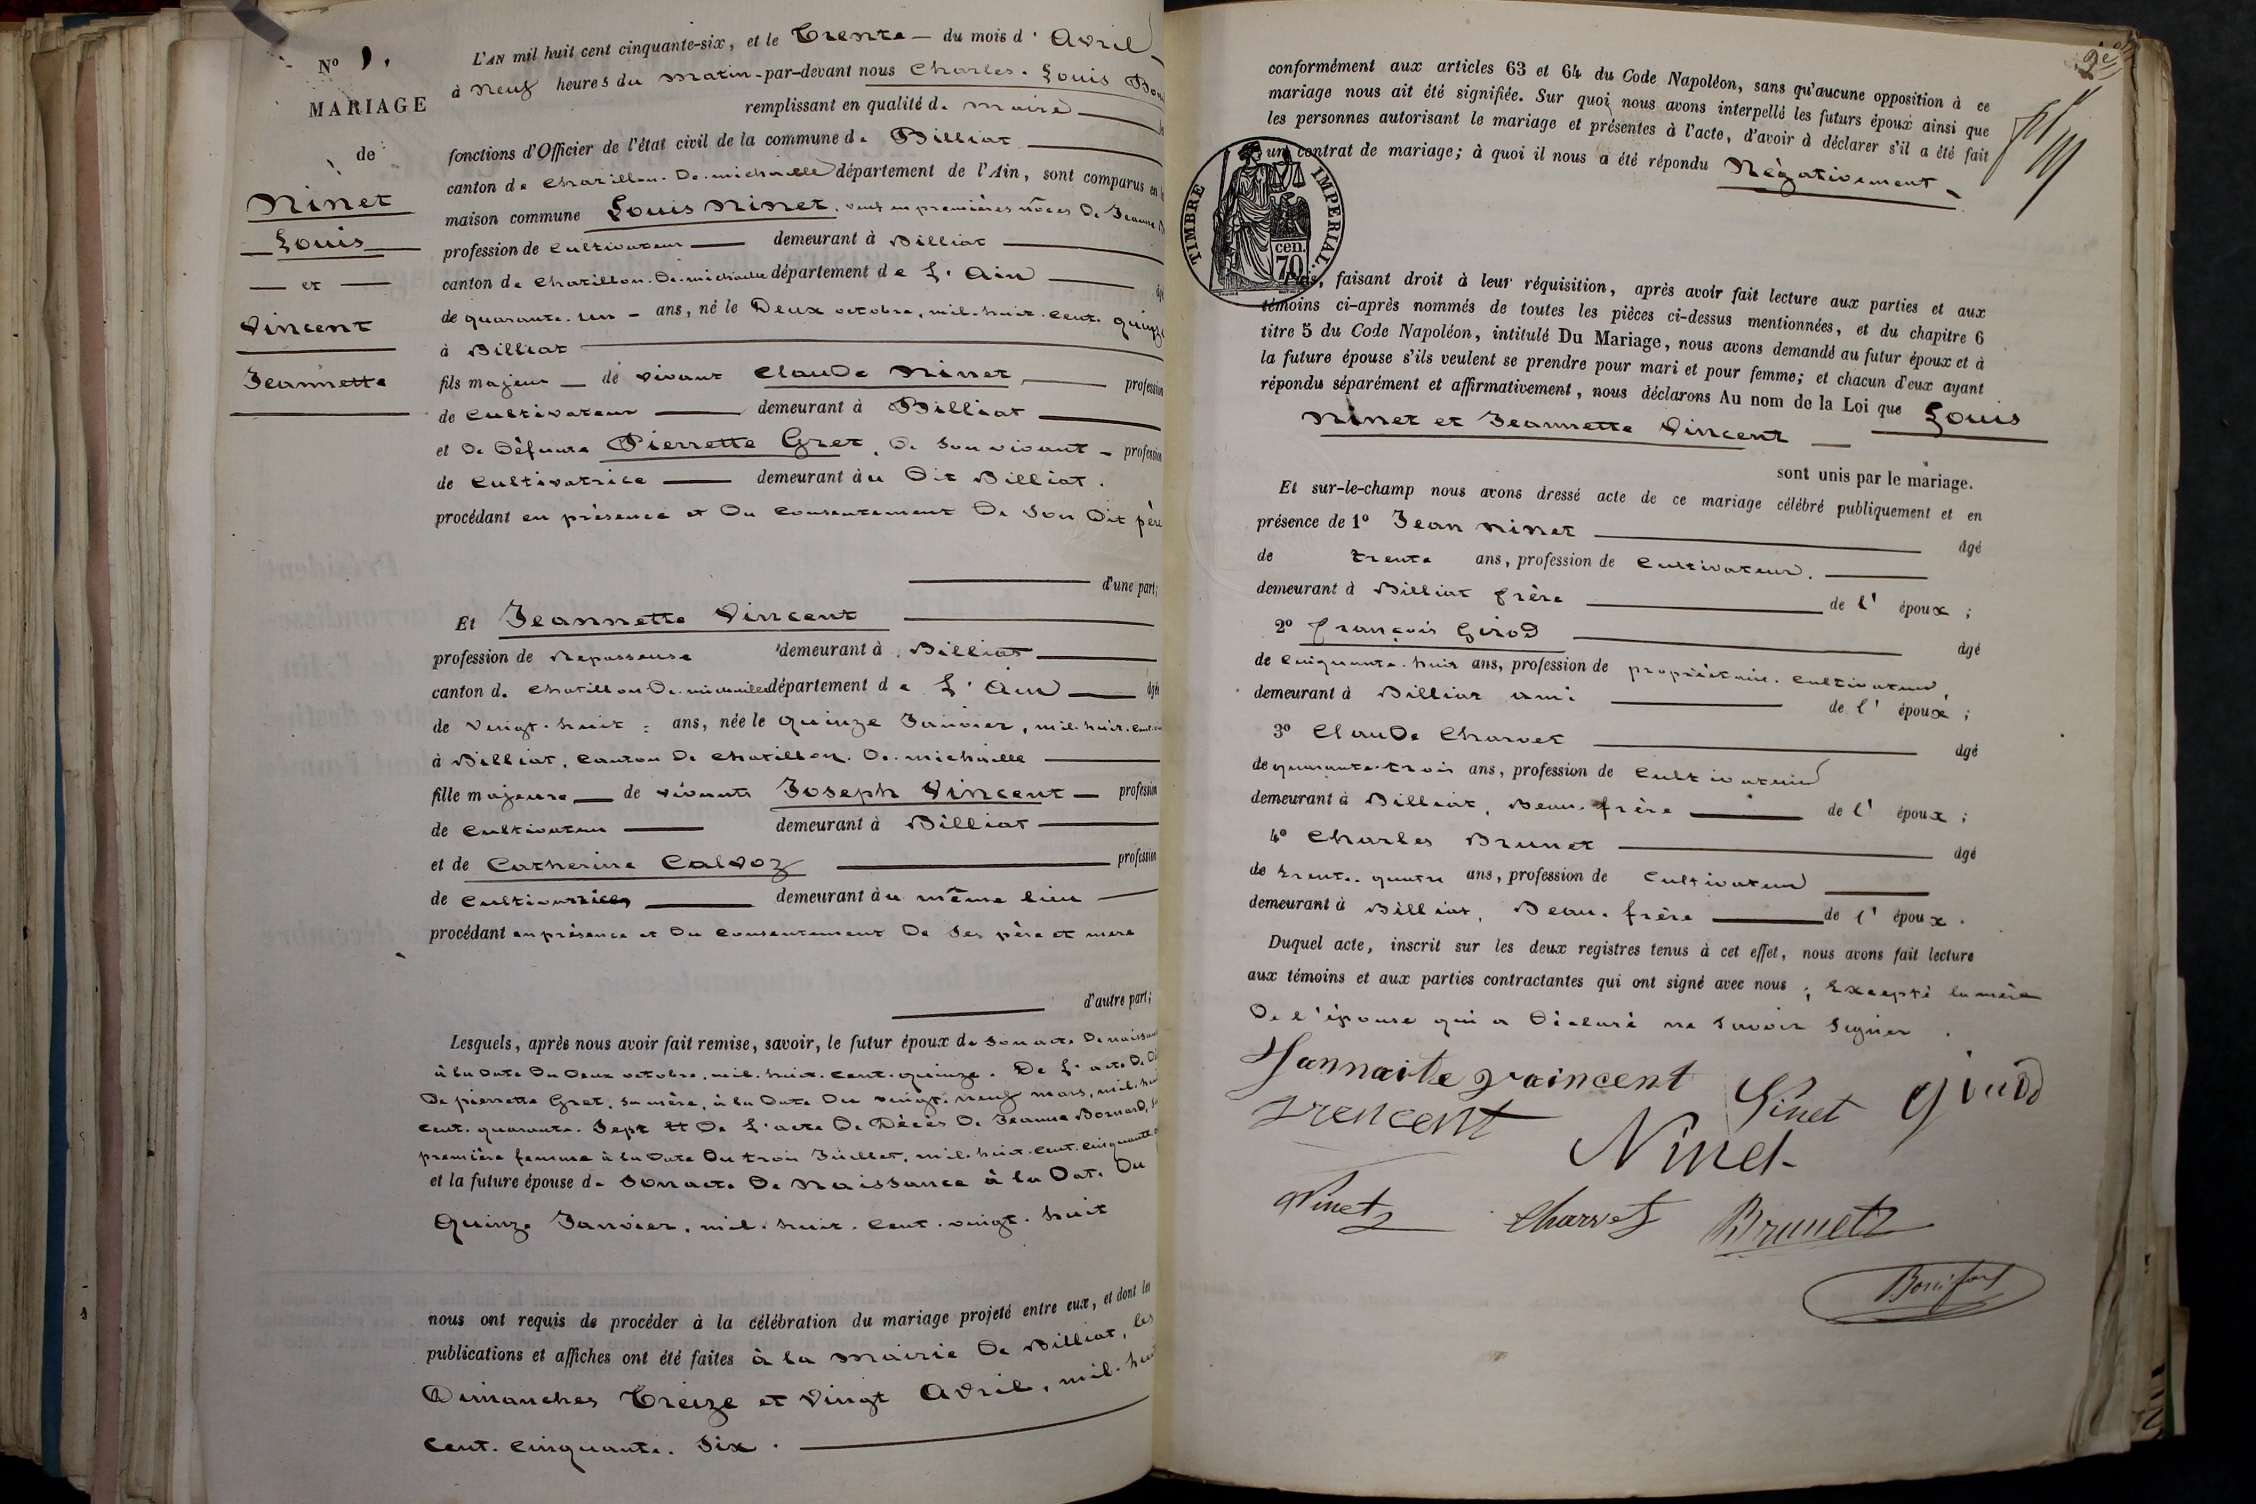 N° 1.
MARIAGE
de
Ninet
Louis
et
Vincent
Jeannette
L'AN mil huit cent cinquante-six, et le Trente du mois d'Avril
à Neuf heures du matin par-devant nous Charles Louis
remplissant en qualité de maire
fonctions d'Officier de l'état civil de la commune de Billiat
canton de Chatillon De michaille département de l'Ain, sont comparus en
maison commune Louis Ninet, veuf en premières nôces De Jeanne
profession de Cultivateur demeurant à Billiat
canton de Chatillon De michaille département de L'Ain
de quarante-un ans, né le Deux octobre, mil-huit-cent-quinze
à Billiat
fils majeur de vivant Claude Ninet profession
de Cultivateur demeurant à Billiat
et De Défunte Pierrette Gret, De Son vivant profession
de Cultivatrice demeurant au Dit Billiat.
procédant en présence et Du Consentement De Son Dit père
d'une part;
Et Jeannette Vincent
profession de Repasseuse demeurant à Billiat
canton de Chatillon De michaille département de L'Ain âgée
de vingt-huit ans, née le quinze Janvier, mil-huit-cent
à Billiat, Canton De Chatillon De michaille
fille majeure de vivants Joseph Vincent profession
de Cultivateur demeurant à Billiat
et de Catherine Calvoz profession
de Cultivatrice demeurant au même lieu
procédant en présence et Du Consentement De Ses père et mere
d'autre part;
Lesquels, après nous avoir fait remise, savoir, le futur époux de Son acte De naissance
à la Date Du Deux octobre, mil-huit-cent-quinze. De L'acte De
De pierrette Gret, Sa mère, à la Date Du vingt-neuf mars, mil-huit
Cent-quarante-Sept et De L'acte De Décès De Jeanne Bornard, Sa
première femme à la Date Du trois Juillet, mil-huit-Cent-Cinquante
et la future épouse de Son acte De Naissance à la Date Du
Quinze Janvier, mil-huit-Cent-vingt-huit
nous ont requis de procéder à la célébration du mariage projeté entre eux, et dont les
publications et affiches ont été faites à la Mairie De Billiat, les
Dimanches Treize et Vingt Avril, mil-huit
Cent-Cinquante-Six.
2e
conformément aux articles 63 et 64 du Code Napoléon, sans qu'aucune opposition à ce
mariage nous ait été signifiée. Sur quoi nous avons interpellé les futurs époux ainsi que
les personnes autorisant le mariage et présentes à l'acte, d'avoir à déclarer s'il a été fait
un contrat de mariage; à quoi il nous a été répondu Négativement
TIMBRE IMPERIAL.
70 cen.
faisant droit à leur réquisition, après avoir fait lecture aux parties et aux
témoins ci-après nommés de toutes les pièces ci-dessus mentionnées, et du chapitre 6
titre 5 du Code Napoléon, intitulé Du Mariage, nous avons demandé au futur époux et à
la future épouse s'ils veulent se prendre pour mari et pour femme; et chacun d'eux ayant
répondu séparément et affirmativement, nous déclarons Au nom de la Loi que Louis
Ninet et Jeannette Vincent
sont unis par le mariage.
Et sur-le-champ nous avons dressé acte de ce mariage célébré publiquement et en
présence de 1° Jean Ninet âgé
de trente ans, profession de Cultivateur.
demeurant à Billiat frère de l'époux;
2° François Girod âgé
de Cinquante-huit ans, profession de propriétaire-Cultivateur,
demeurant à Billiat ami de l'époux;
3° Claude Charvet âgé
de quarante-trois ans, profession de Cultivateur
demeurant à Billiat, Beau-frère de l'époux;
4° Charles Brunet âgé
de trente-quatre ans, profession de Cultivateur
demeurant à Billiat, Beau-frère de l'époux.
Duquel acte, inscrit sur les deux registres tenus à cet effet, nous avons fait lecture
aux témoins et aux parties contractantes qui ont signé avec nous; Excepté la mère
De l'épouse qui a Déclaré ne Savoir Signer.
Jannaite vaincent Ninet Girod
vrencent Ninet
Ninet Charvet Brunet